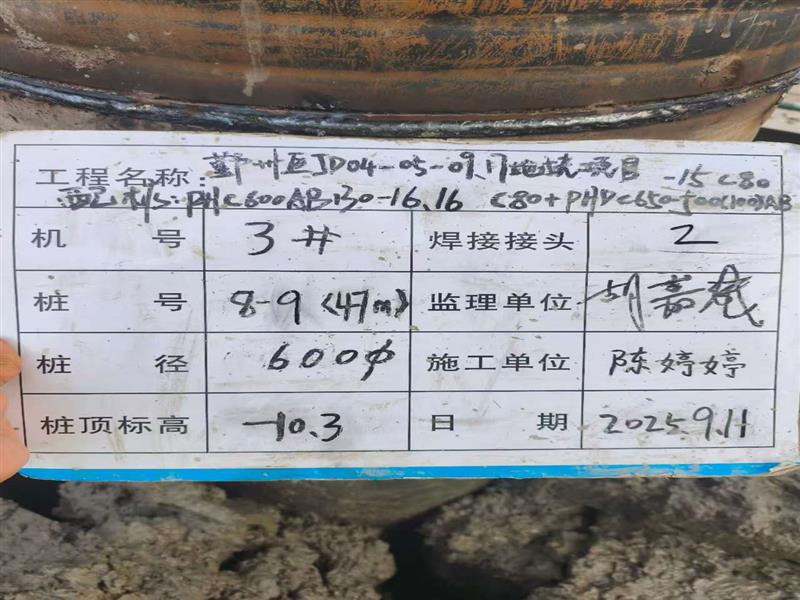 工程名称: 鄞州区JD04-05-09.17地块项目
配桩: PHC600AB130-16.16 C80+PHDC650-500(100)AB -15C80
机 号 3# 焊接接头 2
桩 号 8-9 (47m) 监理单位 胡嘉
桩 径 600φ 施工单位 陈婷婷
桩顶标高 -10.3 日 期 2025.9.11